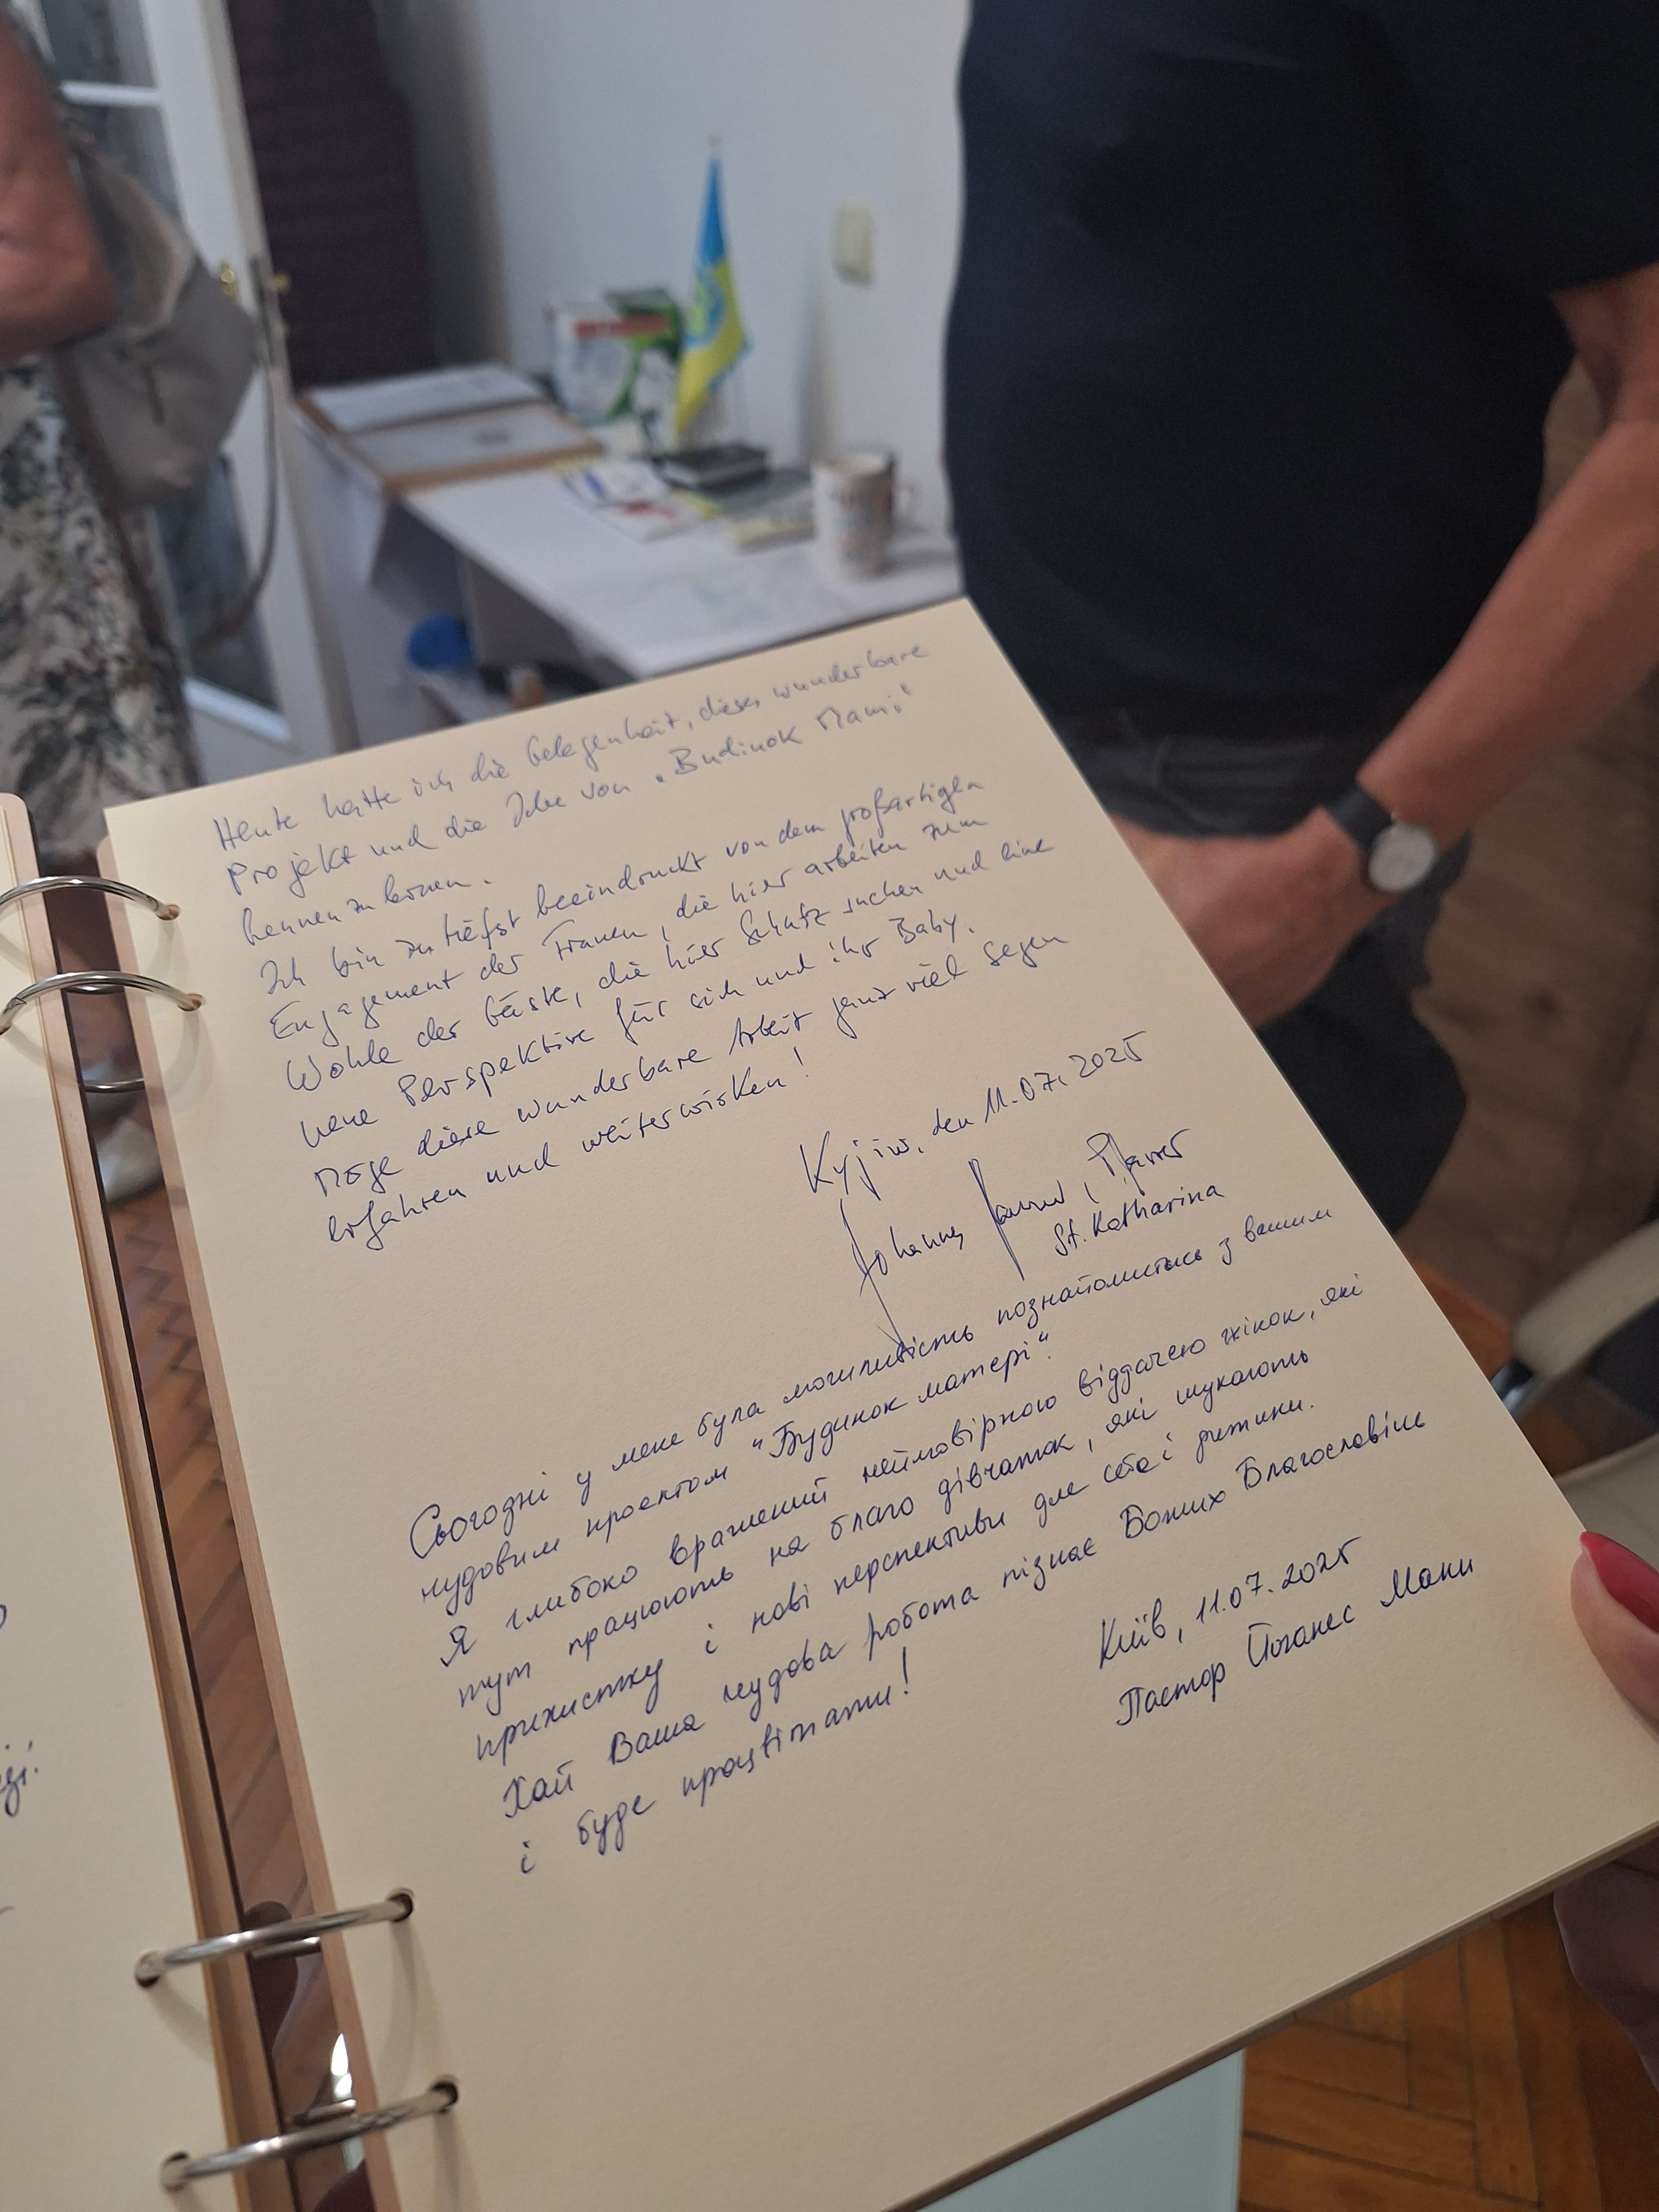 Heute hatte ich die Gelegenheit, dieses wunderbare
Projekt und die Idee von „Budinok Mami“
kennenzulernen.
Ich bin zu tiefst beeindruckt von dem großartigen
Engagement der Frauen, die hier arbeiten zum
Wohle der Gäste, die hier Schutz suchen und eine
neue Perspektive für sich und ihr Baby.
Möge diese wunderbare Arbeit ganz viel Segen
erfahren und weiterwirken!
Kyjiw, den 11.07.2025
Johannes, Pfarrer
St. Katharina
Сьогодні у мене була можливість познайомитись з вашим
чудовим проектом "Будинок матері".
Я глибоко вражений неймовірною віддачею жінок, які
тут працюють на благо дівчаток, які шукають
прихистку і нові перспективи для себе і дитини.
Хай Ваша чудова робота пізнає Божих Благословінь
і буде процвітати!
Київ, 11.07.2025
Пастор Йоганес Манн